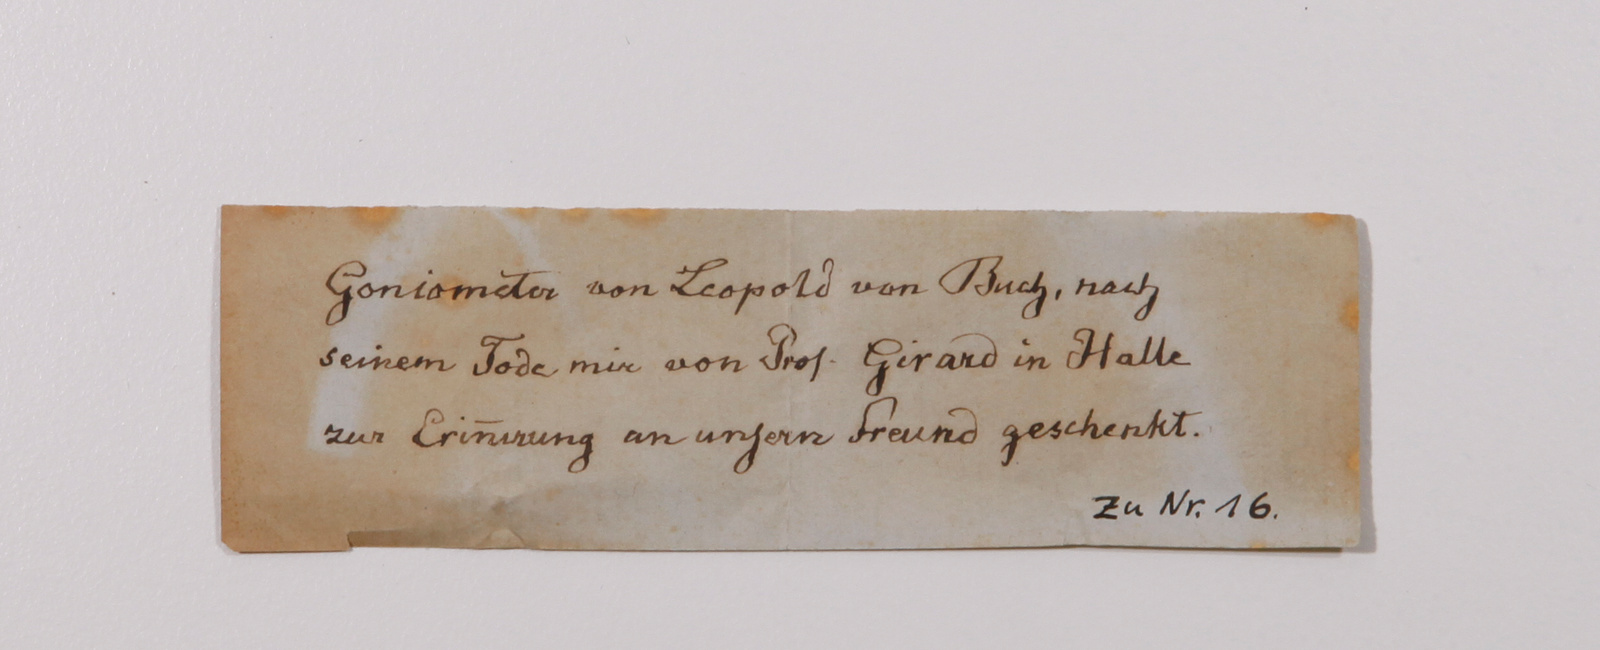 Goniometer von Leopold von Buch, nach
seinem Tode mir von Prof. Girard in Halle
zur Erin̄erung an unsern Freund geschenkt.
Zu Nr. 16.